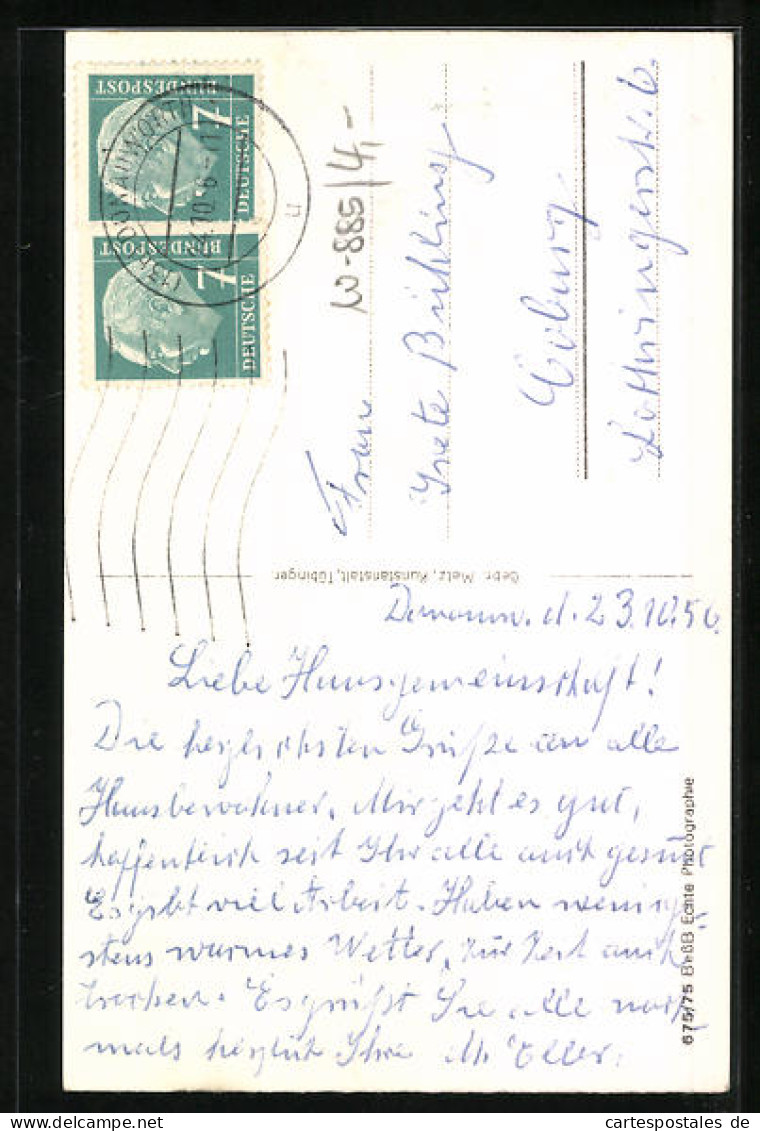 DEUTSCHE
BUNDESPOST
7
DEUTSCHE
BUNDESPOST
7
DONAUWÖRTH
W-885/4,-
Frau
Grete Bickling
Coburg
Lothringerstr. 6.
Gebr. Metz, Kunstanstalt, Tübingen
d. 23.10.56.
Liebe Hausgemeinschaft!
Die herzlichsten Grüße an alle
Hausbewohner. Mir geht es gut,
hoffentlich seit Ihr alle auch gesund
Es gibt viel Arbeit. Haben wenig-
stens warmes Wetter, zur Zeit auch
trocken. Es grüßt Sie alle noch-
mals herzlich Ihre M. Eller.
675/75 BeBB Echte Photographie
www.cartespostales.de
cartespostales de